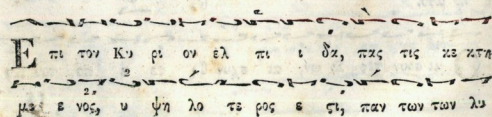 Ε πι τον Κυ ρι ον ελ πι ι δα, πας τις κε κτη
με ε νος, υ ψη λο τε ρος ε ϛι, παν των των λυ